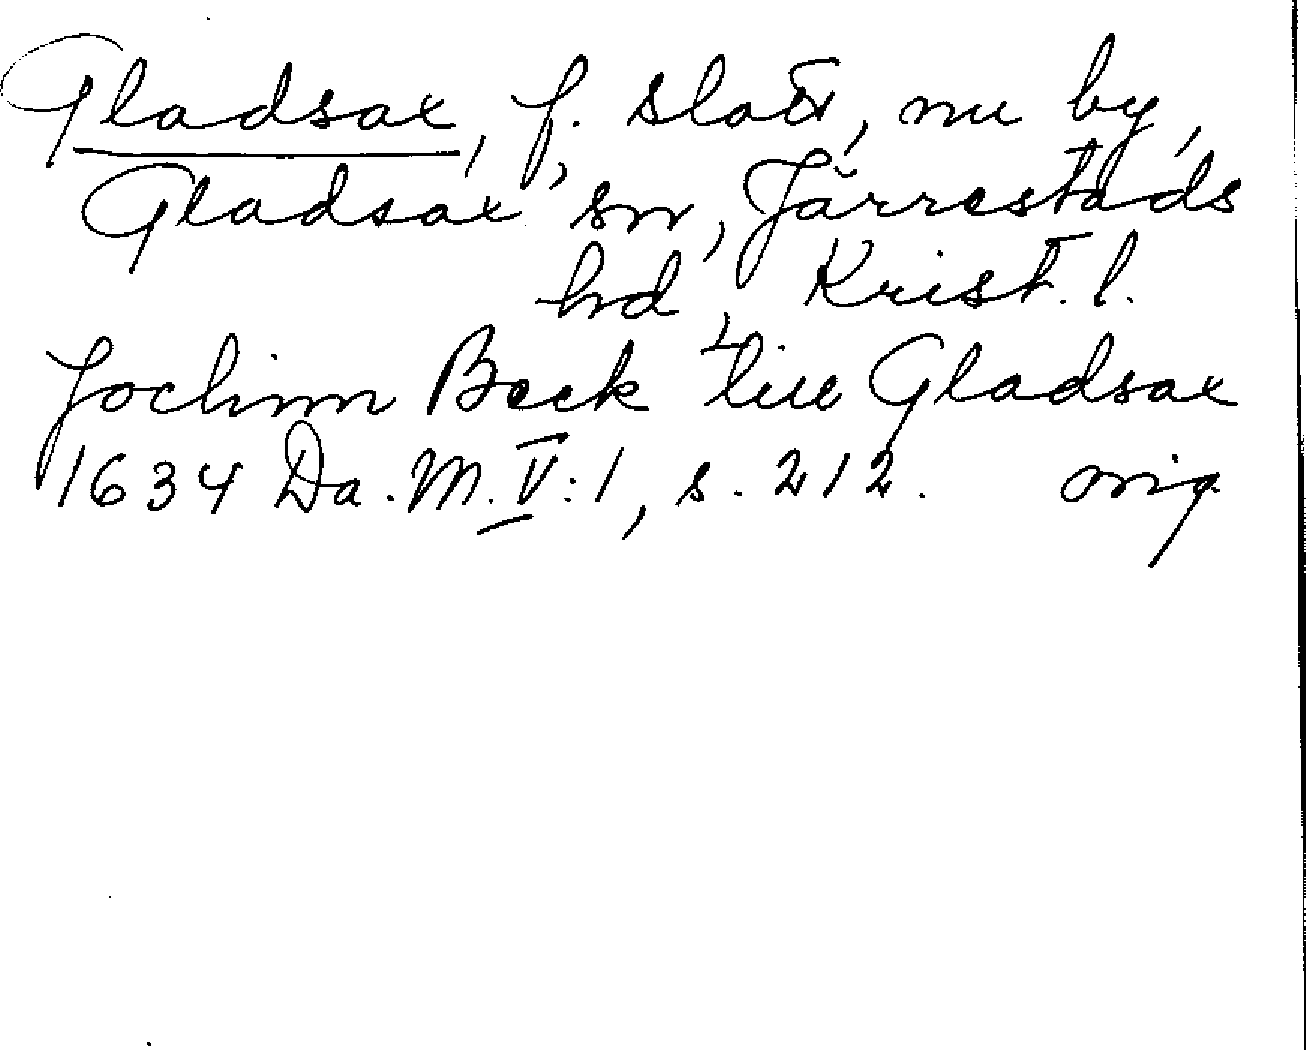 Gladsax, f. slott, nu by,
Gladsax sn, Järrestads
hd, Krist. l.
Jochim Beck till Gladsax
1634 Da. M. V:1, s. 212. orig.